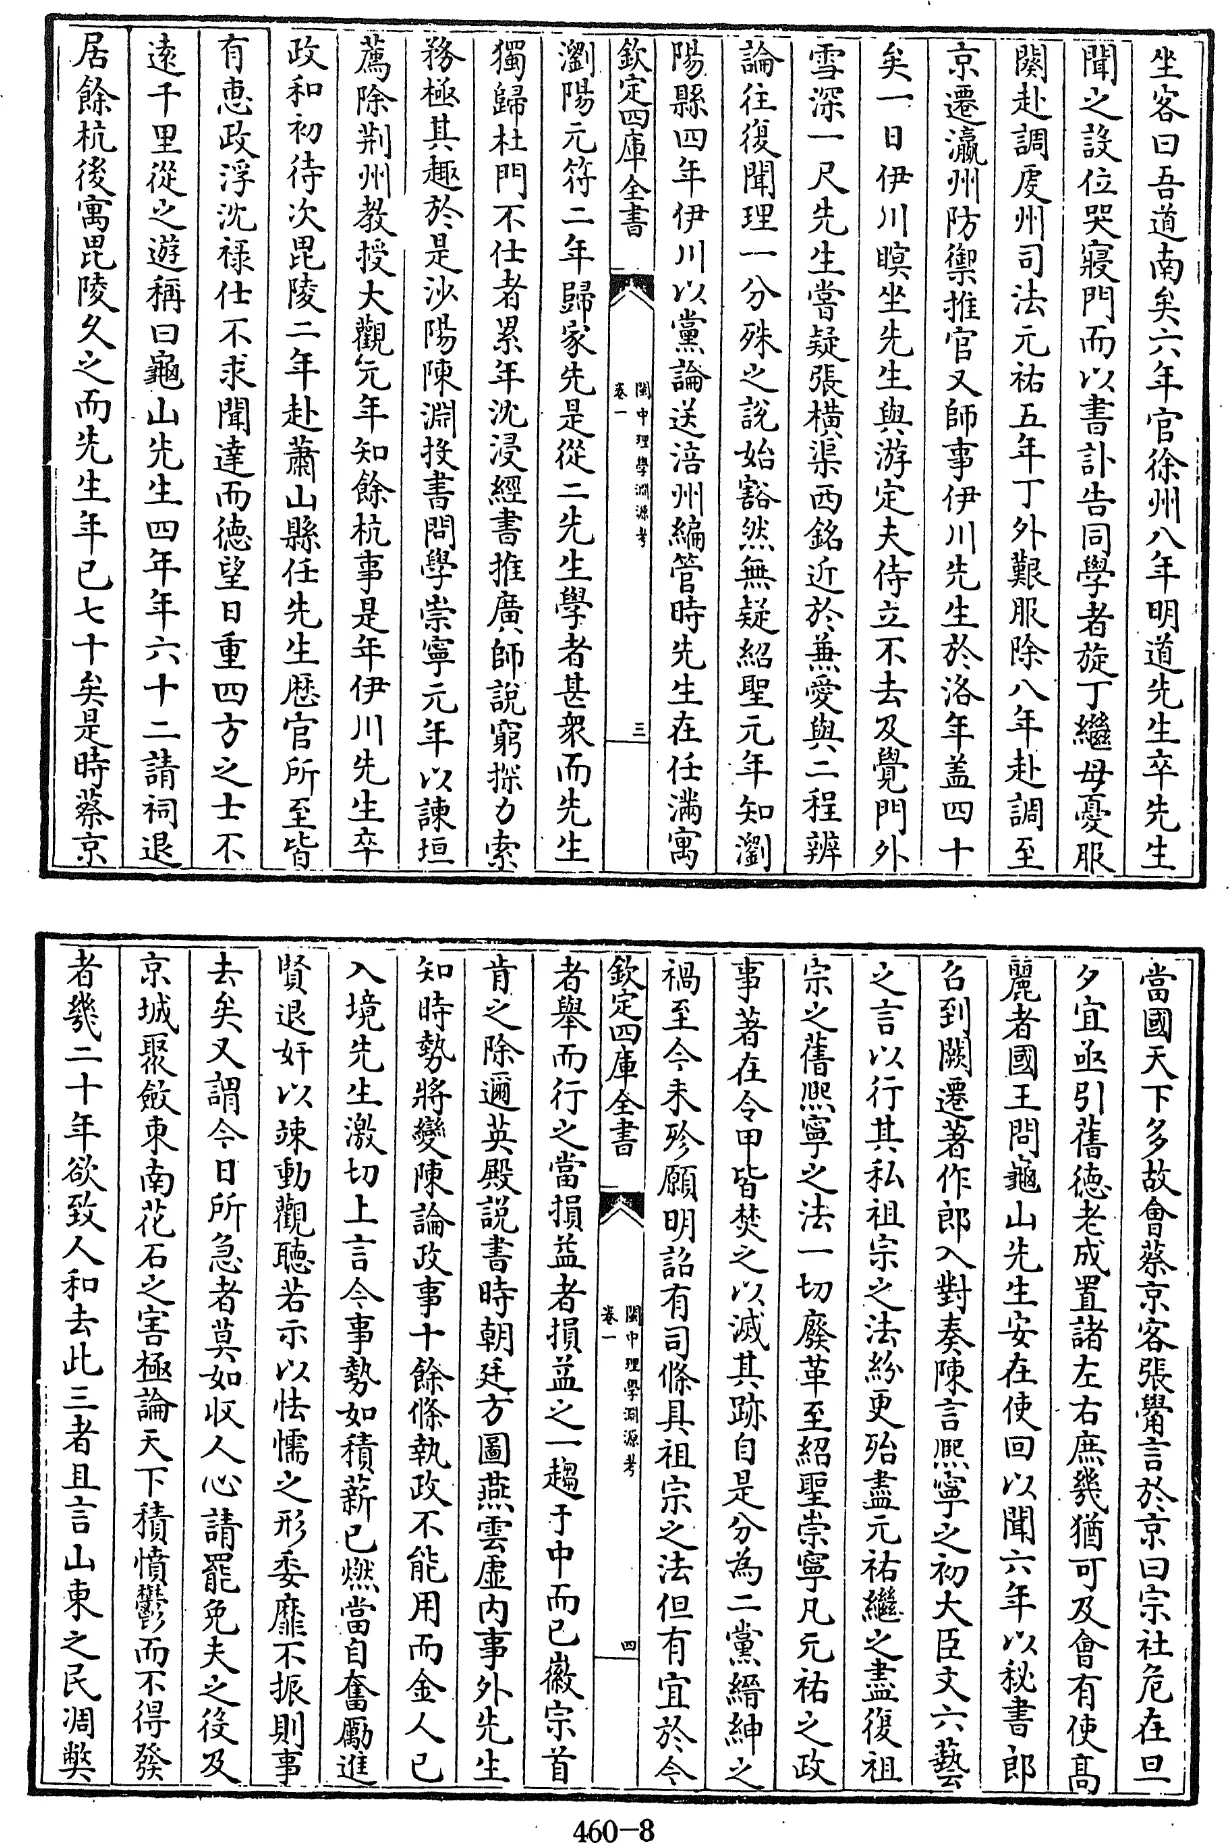 坐客曰吾道南矣六年官徐州八年明道先生卒先生
聞之設位哭寢門而以書訃告同學者旋丁繼母憂服
闋赴調虔州司法元祐五年丁外艱服除八年赴調至
京遷瀛州防禦推官又師事伊川先生於洛年盖四十
矣一日伊川瞑坐先生與游定夫侍立不去及覺門外
雪深一尺先生嘗疑張橫渠西銘近於兼愛與二程辨
論往復聞理一分殊之說始豁然無疑紹聖元年知瀏
陽縣四年伊川以黨論送涪州編管時先生在任滿寓
欽定四庫全書
閩中理學淵源考
卷一
三
瀏陽元符二年歸家先是從二先生學者甚衆而先生
獨歸杜門不仕者累年沈浸經書推廣師說窮探力索
務極其趣於是沙陽陳淵投書問學崇寧元年以諫垣
薦除荆州教授大觀元年知餘杭事是年伊川先生卒
政和初待次毘陵二年赴蕭山縣任先生歷官所至皆
有惠政浮沈祿仕不求聞達而德望日重四方之士不
遠千里從之遊稱曰龜山先生四年年六十二請祠退
居餘杭後寓毘陵久之而先生年已七十矣是時蔡京
當國天下多故會蔡京客張觷言於京曰宗社危在旦
夕宜亟引舊德老成置諸左右庶幾猶可及會有使高
麗者國王問龜山先生安在使回以聞六年以秘書郎
召到闕遷著作郎入對奏陳言熙寧之初大臣文六藝
之言以行其私祖宗之法紛更殆盡元祐繼之盡復祖
宗之舊熙寧之法一切廢革至紹聖崇寧凡元祐之政
事著在令甲皆焚之以滅其跡自是分為二黨縉紳之
禍至今未殄願明詔有司條具祖宗之法但有宜於今
欽定四庫全書
閩中理學淵源考
卷一
四
者舉而行之當損益者損益之一趨于中而已徽宗首
肯之除邇英殿説書時朝廷方圖燕雲虛内事外先生
知時勢將變陳論政事十餘條執政不能用而金人已
入境先生激切上言今事勢如積薪已燃當自奮勵進
賢退奸以竦動觀聽若示以怯懦之形委靡不振則事
去矣又謂今日所急者莫如收人心請罷免夫之役及
京城聚斂東南花石之害極論天下積憤鬱而不得發
者幾二十年欲致人和去此三者且言山東之民凋弊
460-8